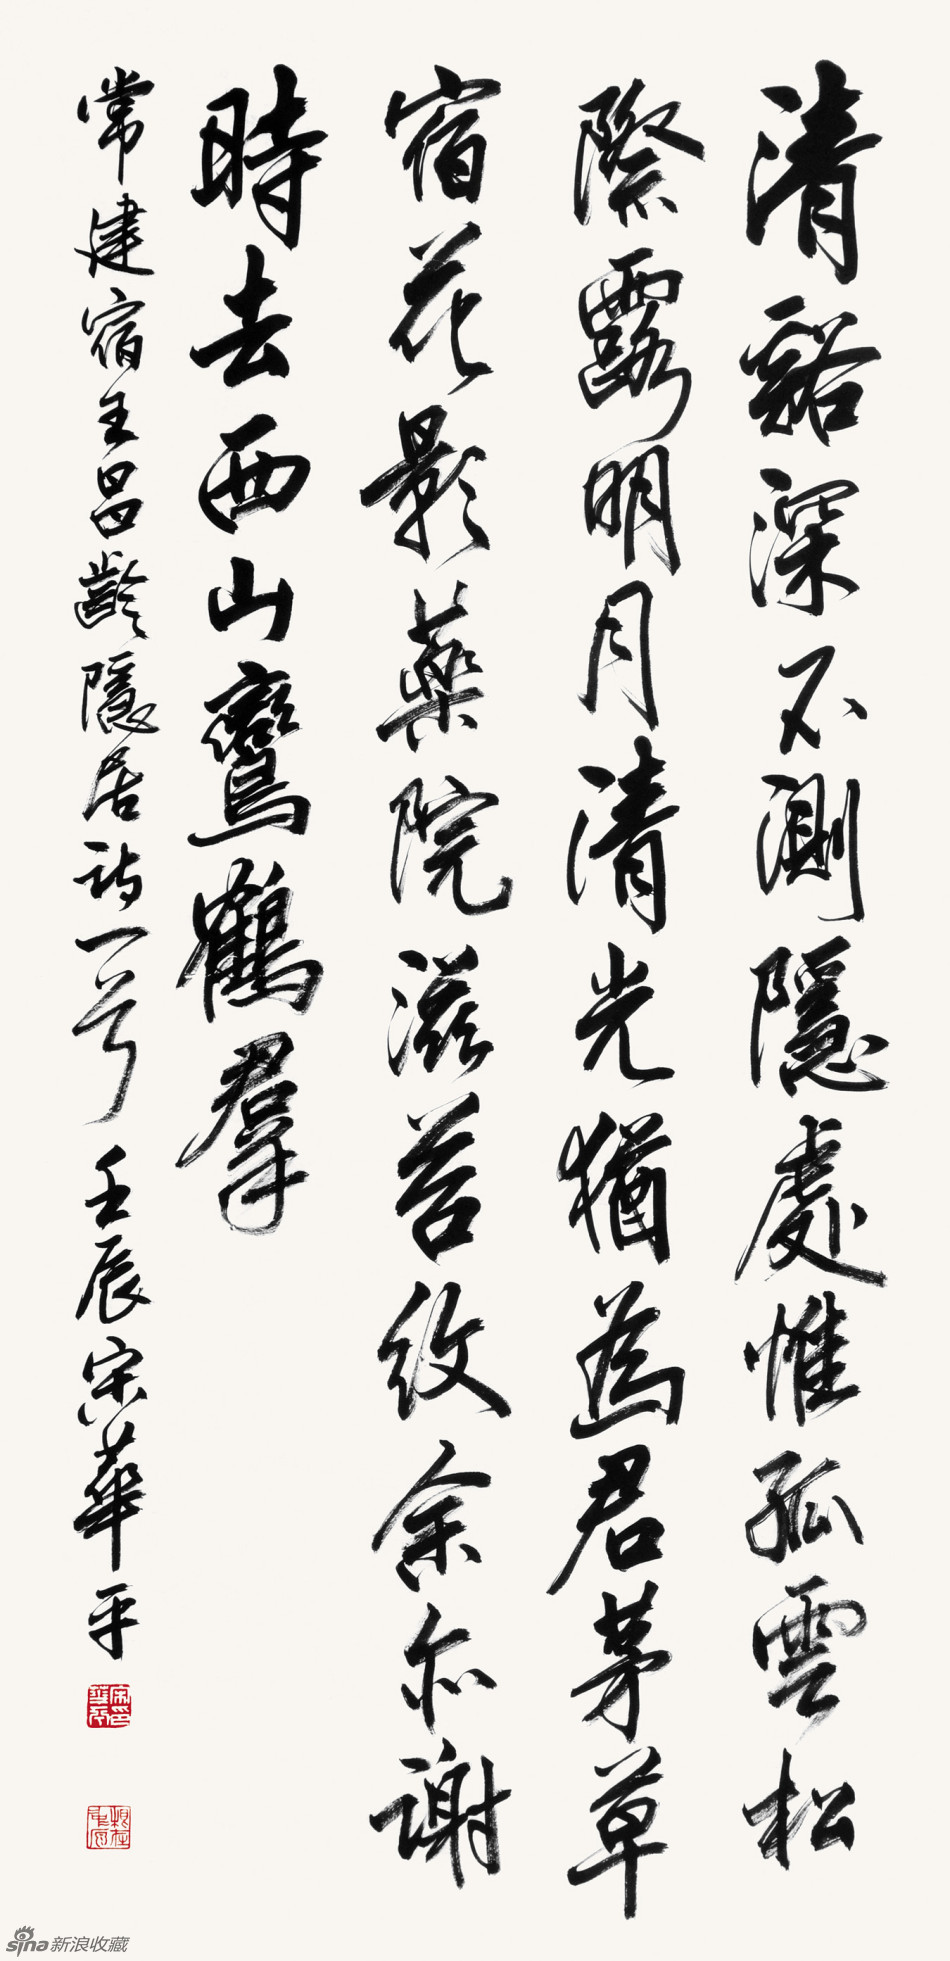 清谿深不測隱處惟孤雲松
際露明月清光猶為君茅草
宿花影藥院滋苔紋余亦謝
時去西山鸞鶴羣
常建宿王昌齡隱居詩一首 壬辰宋華平
宋華平印
sina新浪收藏